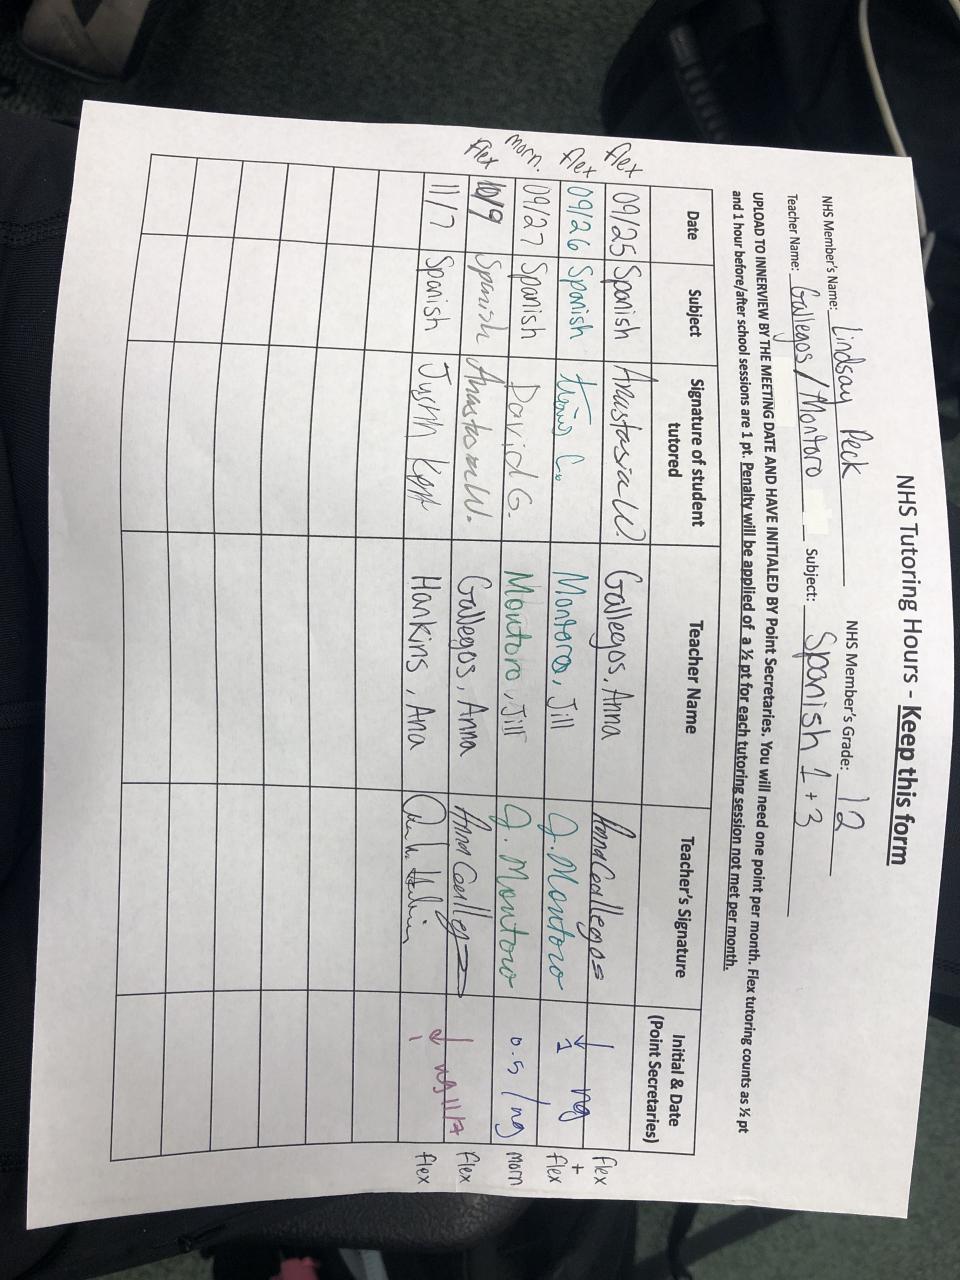 NHS Tutoring Hours - Keep this form
NHS Member's Name: Lindsay Peck NHS Member's Grade: 12
Teacher Name: Gallegos / Montoro Subject: Spanish 1 + 3
UPLOAD TO INNERVIEW BY THE MEETING DATE AND HAVE INITIALED BY Point Secretaries. You will need one point per month. Flex tutoring counts as ½ pt
and 1 hour before/after school sessions are 1 pt. Penalty will be applied of a ½ pt for each tutoring session not met per month.
Date Subject Signature of student tutored Teacher Name Teacher's Signature Initial & Date (Point Secretaries)
flex 09/25 Spanish Anastasia W. Gallegos, Anna Anna Gallegos flex
flex 09/26 Spanish C. Montoro, Jill J. Montoro 1 ng + flex
morn. 09/27 Spanish David G. Montoro, Jill J. Montoro 0.5 / ng morn
flex 10/9 Spanish Gallegos, Anna Anna Gallegos flex
11/7 Spanish Justin Hankins, Ana 1 ng 11/7 flex